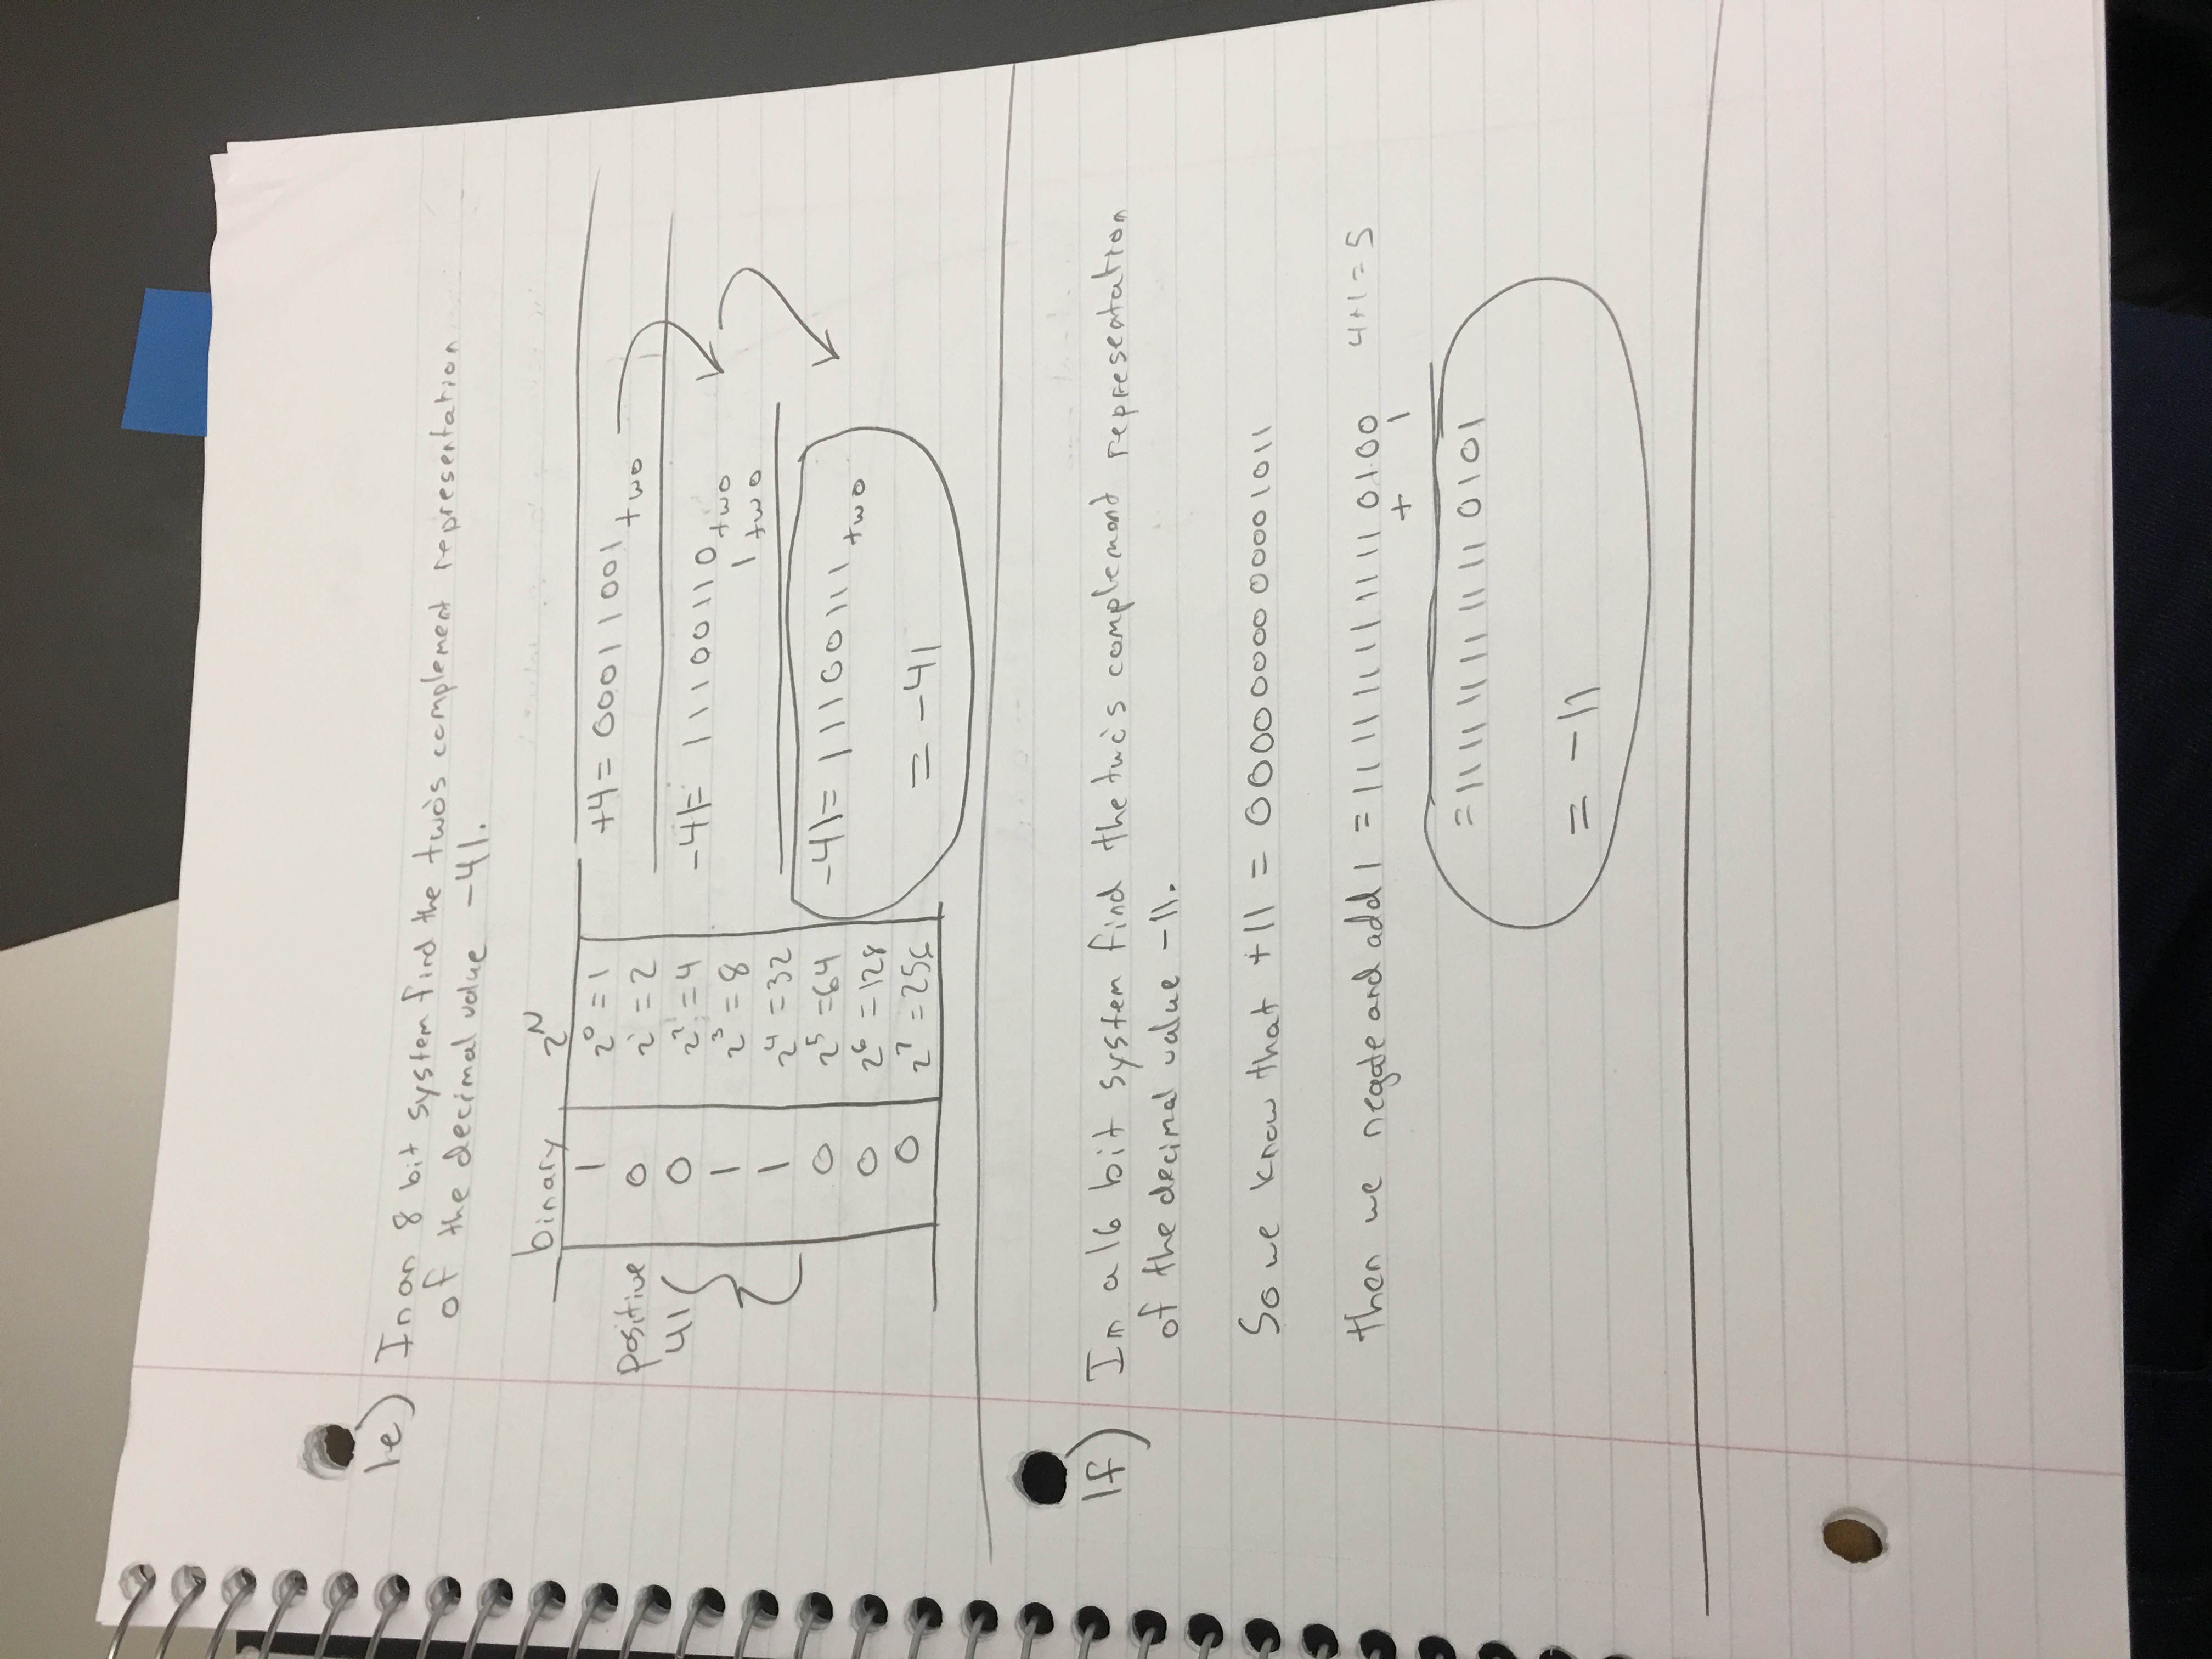 1e) In an 8 bit system find the two's complement representation
of the decimal value -41.
binary 2^N
1 2^0 = 1
0 2^1 = 2
0 2^2 = 4
1 2^3 = 8
1 2^4 = 32
0 2^5 = 64
0 2^6 = 128
0 2^7 = 256
positive
41
+4 = 00011001 two
-41 = 11100110 two
1 two
-41 = 11100111 two
= -41
1f) In a 16 bit system find the two's complement representation
of the decimal value -11.
So we know that +11 = 0000000000001011
then we negate and add 1 = 1111111111110100 4+1=5
+ 1
= 1111111111110101
= -11